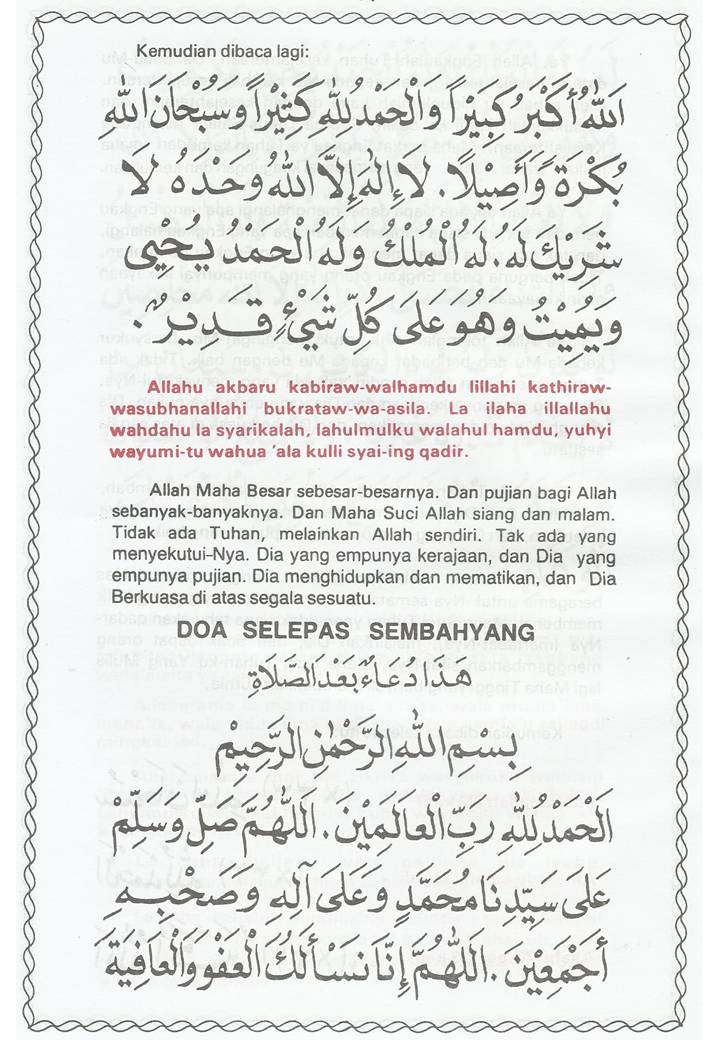 Kemudian dibaca lagi:
اَللهُ أَكْبَرُ كَبِيْرًا وَالْحَمْدُ لِلّٰهِ كَثِيْرًا وَسُبْحَانَ اللهِ
بُكْرَةً وَأَصِيْلًا. لَا إِلٰهَ إِلَّا اللهُ وَحْدَهُ لَا
شَرِيْكَ لَهُ، لَهُ الْمُلْكُ وَلَهُ الْحَمْدُ يُحْيِيْ
وَيُمِيْتُ وَهُوَ عَلَى كُلِّ شَيْءٍ قَدِيْرٌ.
Allahu akbaru kabiraw-walhamdu lillahi kathiraw-
wasubhanallahi bukrataw-wa-asila. La ilaha illallahu
wahdahu la syarikalah, lahulmulku walahul hamdu, yuhyi
wayumi-tu wahua 'ala kulli syai-ing qadir.
Allah Maha Besar sebesar-besarnya. Dan pujian bagi Allah
sebanyak-banyaknya. Dan Maha Suci Allah siang dan malam.
Tidak ada Tuhan, melainkan Allah sendiri. Tak ada yang
menyekutui-Nya. Dia yang empunya kerajaan, dan Dia yang
empunya pujian. Dia menghidupkan dan mematikan, dan Dia
Berkuasa di atas segala sesuatu.
DOA SELEPAS SEMBAHYANG
هٰذَا دُعَاءٌ بَعْدَ الصَّلَاةِ
بِسْمِ اللهِ الرَّحْمٰنِ الرَّحِيْمِ
اَلْحَمْدُ لِلّٰهِ رَبِّ الْعَالَمِيْنَ. اَللّٰهُمَّ صَلِّ وَسَلِّمْ
عَلَى سَيِّدِنَا مُحَمَّدٍ وَعَلَى آلِهِ وَصَحْبِهِ
أَجْمَعِيْنَ. اَللّٰهُمَّ إِنَّا نَسْأَلُكَ الْعَفْوَ وَالْعَافِيَةَ